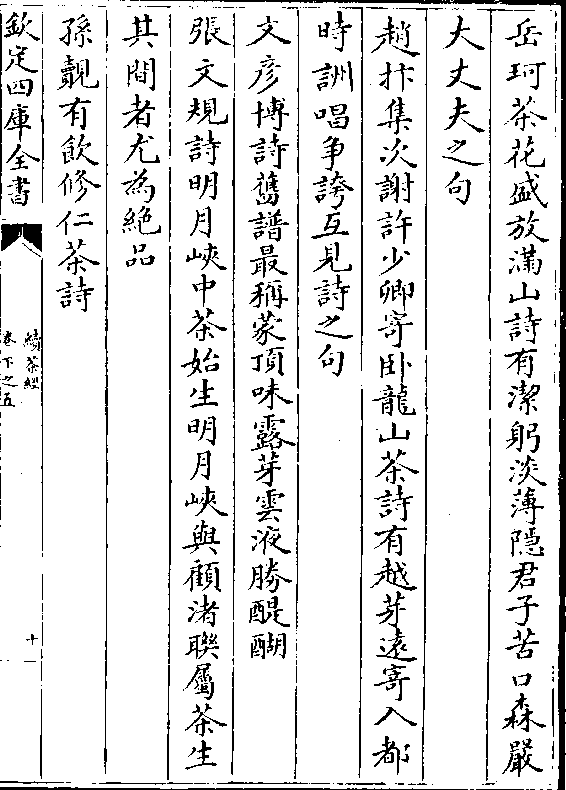 岳珂茶花盛放滿山詩有潔躬淡薄隠君子苦口森嚴
大丈夫之句
趙抃集次謝許少卿寄卧龍山茶詩有越芽逺寄入都
時訓唱争誇互見詩之句
文彦博詩舊譜最稱蒙頂味露芽雲液勝醍醐
張文規詩明月峽中茶始生明月峽與顧渚聨屬茶生
其間者尤為絶品
孫覿有飲修仁茶詩
欽定四庫全書
續茶經
卷下之五
十